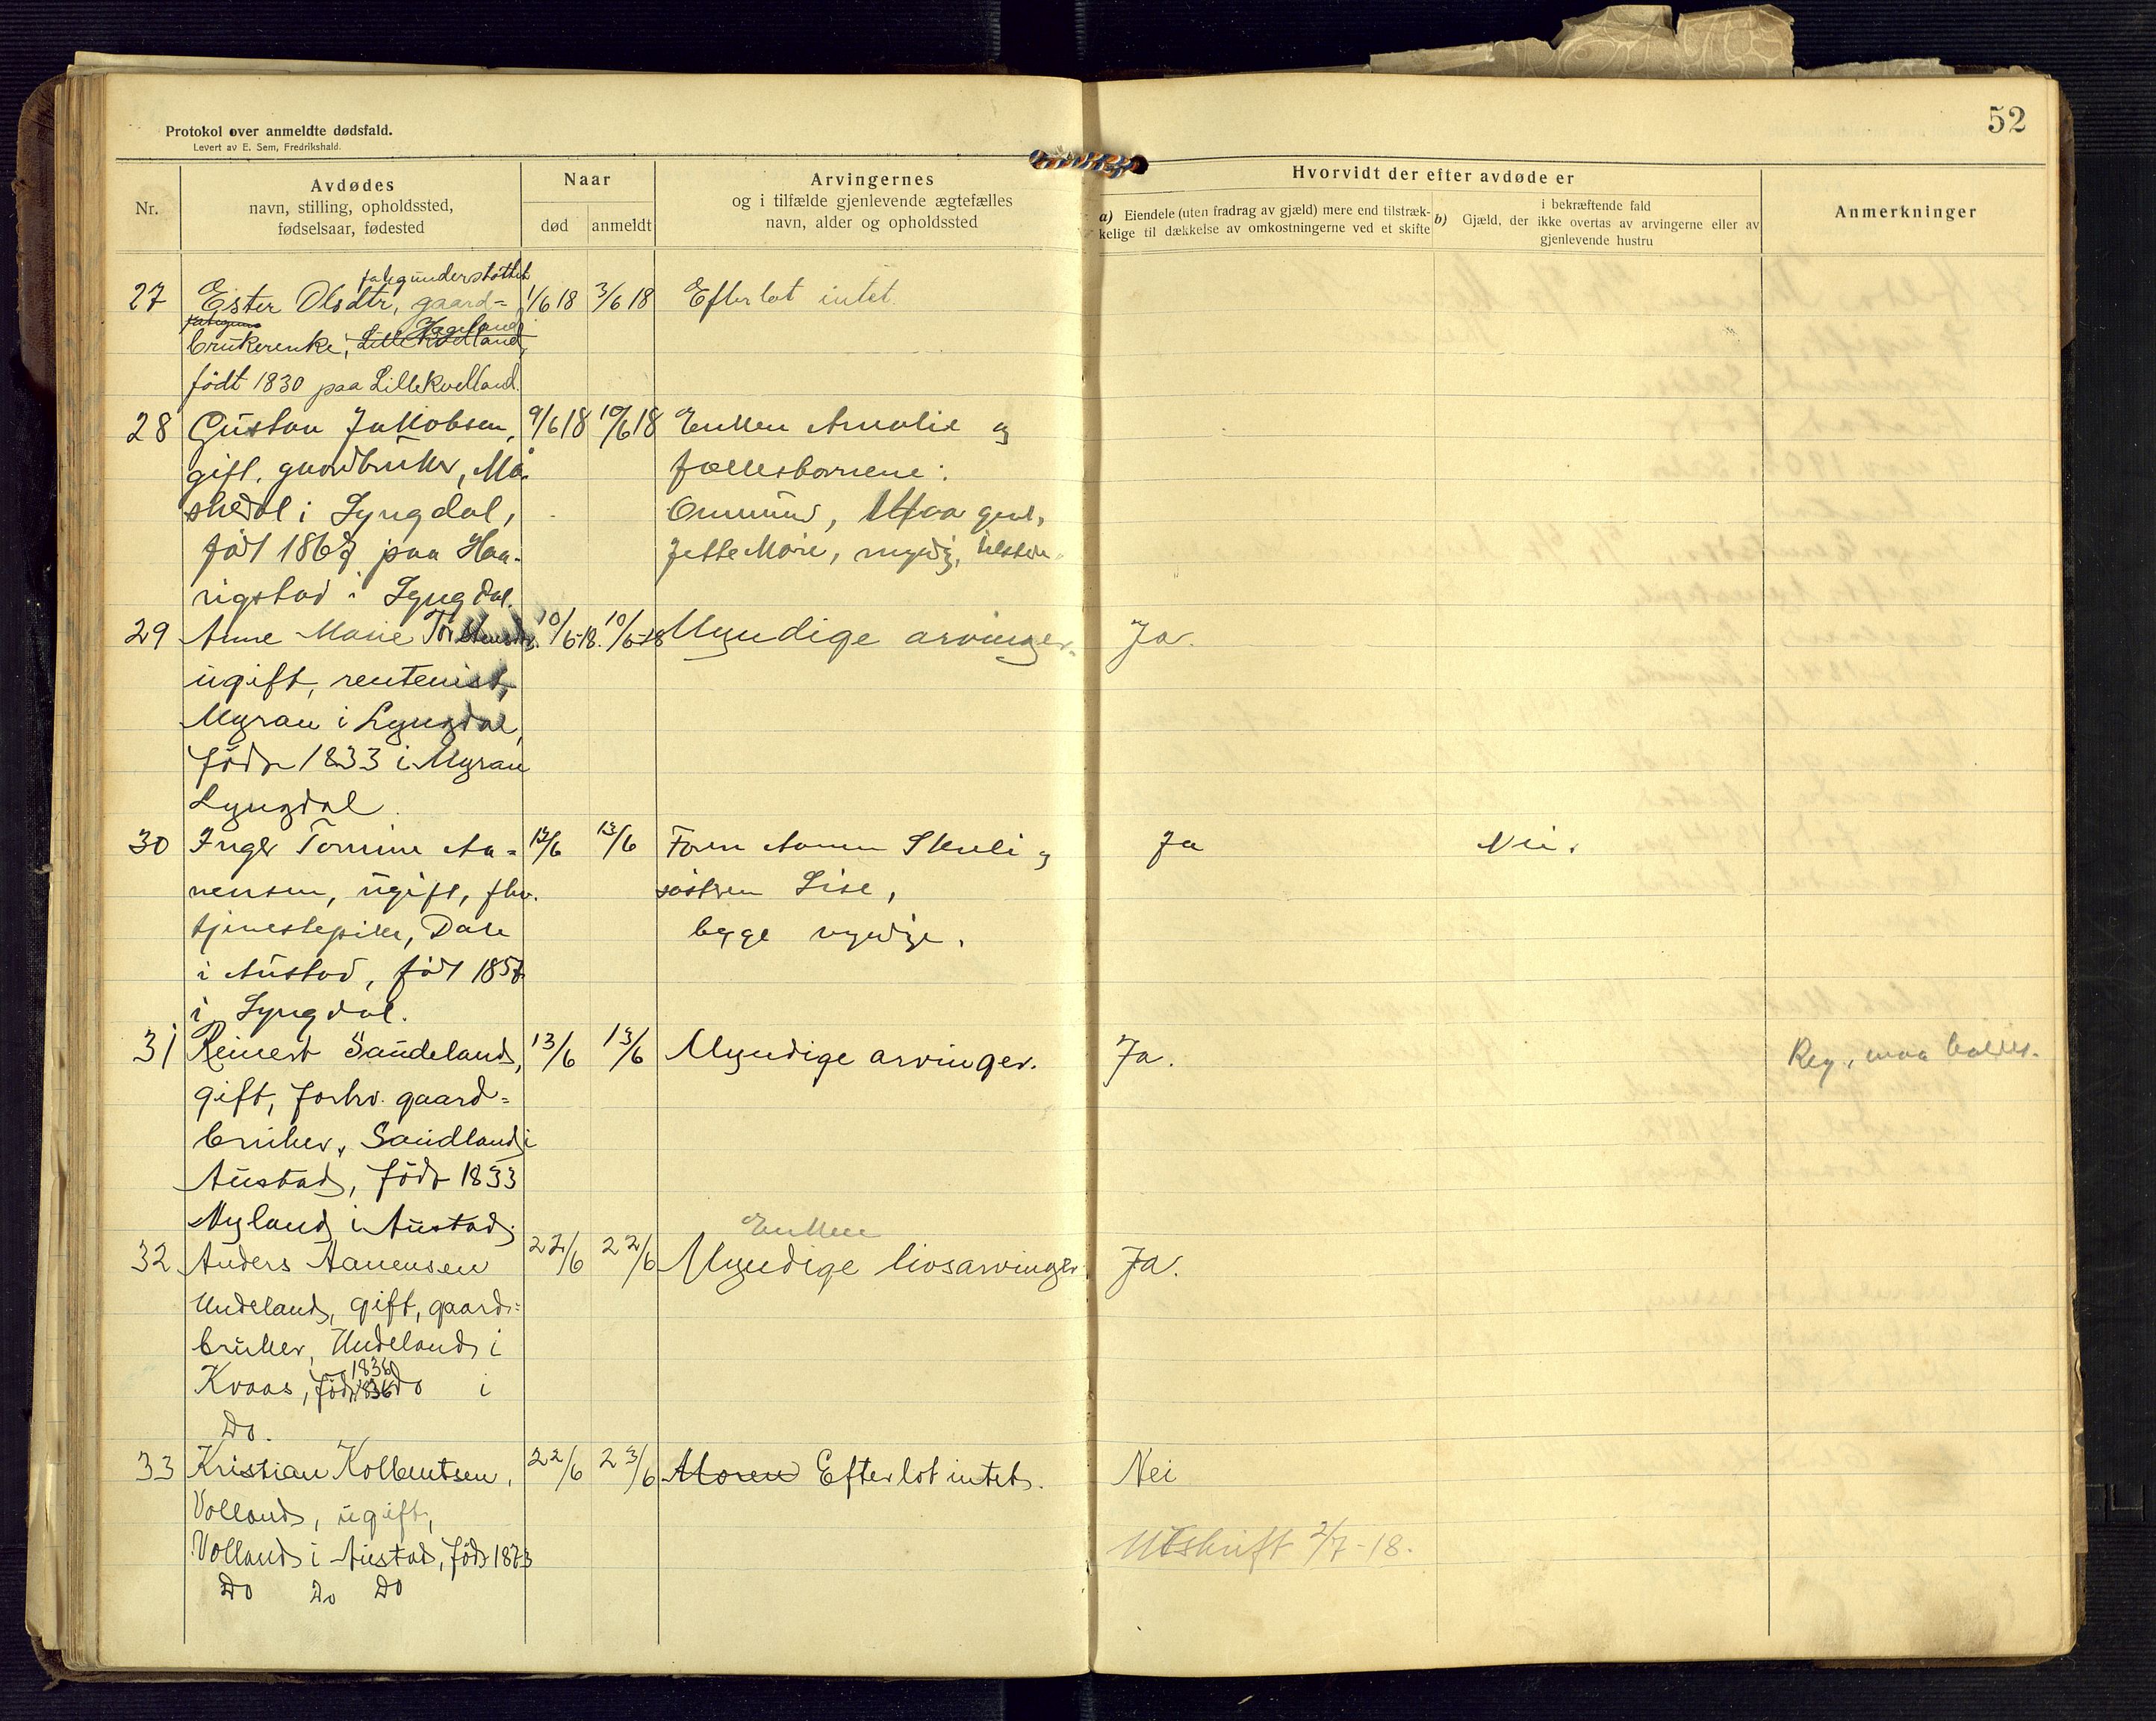 52
Protokol over anmeldte dødsfald.
Levert av E. Sem, Fredrikshald.
Nr.
Avdødes
navn, stilling, opholdssted,
fødselsaar, fødested
Naar
død
anmeldt
Arvingernes
og i tilfælde gjenlevende ægtefælles
navn, alder og opholdssted
Hvorvidt der efter avdøde er
a) Eiendele (uten fradrag av gjæld) mere end tilstræk-
kelige til dækkelse av omkostningerne ved et skifte
b) i bekræftende fald
Gjæld, der ikke overtas av arvingerne eller av
gjenlevende hustru
Anmerkninger
fatigunderstøttet
27 Ester Olsdtr, gaard= 1/6 18 3/6 18 Efterlot intet.
Jageland
brukerenke, Lille Kvelland,
født 1830 paa Lillekvelland.
28 Gustav Jakobsen, 9/6 18 10/6 18 Enken Amalie og
gift, gaardbruker, Må- fællesbarnene:
skedal i Lyngdal, Ommund,
født 1867 paa Haa- Jette Marie, myndig,
rigstad i Lyngdal.
29 Anne Marie 10/6-18. 10/6-18 Myndige arvinger. Ja.
ugift, rentenist,
Myran i Lyngdal,
født 1833 i Myran
Lyngdal.
30 Inger Tomine Aa= 13/6 13/6 Ja Nei.
nensen, ugift, fhv. søstren Lise,
tjenestepike, Dale begge myndige.
i Austad, født
i Lyngdal.
31 Reinert Saudeland, 13/6 13/6 Myndige arvinger. Ja. Reg.
gift, forhv. gaard=
bruker, Saudland i
Austad, født 1833
Nyland i Austad.
Enken
32 Anders Aanensen 22/6 22/6 Myndige livsarvinger. Ja.
Undeland, gift, gaard=
bruker, Undeland i
1836
Kvaas, født 1836 Do i
Do.
33 Kristian Kolbentsen, 22/6 23/6 Moren Efterlot intet. Nei
Volland, ugift,
Volland i Austad, født 1873
Do Do Do
Utskrift 2/7-18.